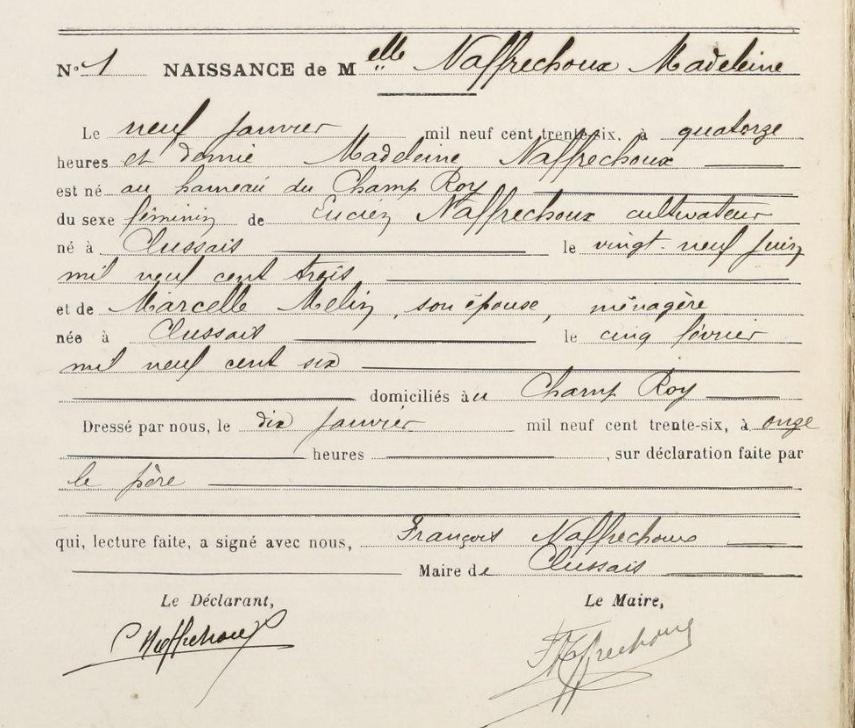 N° 1 NAISSANCE de Melle Naffrechoux Madeleine
Le neuf janvier mil neuf cent trente-six, à quatorze
heures et demie Madeleine Naffrechoux
est né au hameau du Champ Roy
du sexe féminin de Lucien Naffrechoux cultivateur
né à Clussais le vingt-neuf juin
mil neuf cent trois
et de Marcelle Melin, son épouse, ménagère
née à Clussais le cinq février
mil neuf cent six
domiciliés au Champ Roy
Dressé par nous, le dix janvier mil neuf cent trente-six, à onze
heures , sur déclaration faite par
le père
qui, lecture faite, a signé avec nous, François Naffrechoux
Maire de Clussais
Le Déclarant, Le Maire,
Naffrechoux Naffrechoux